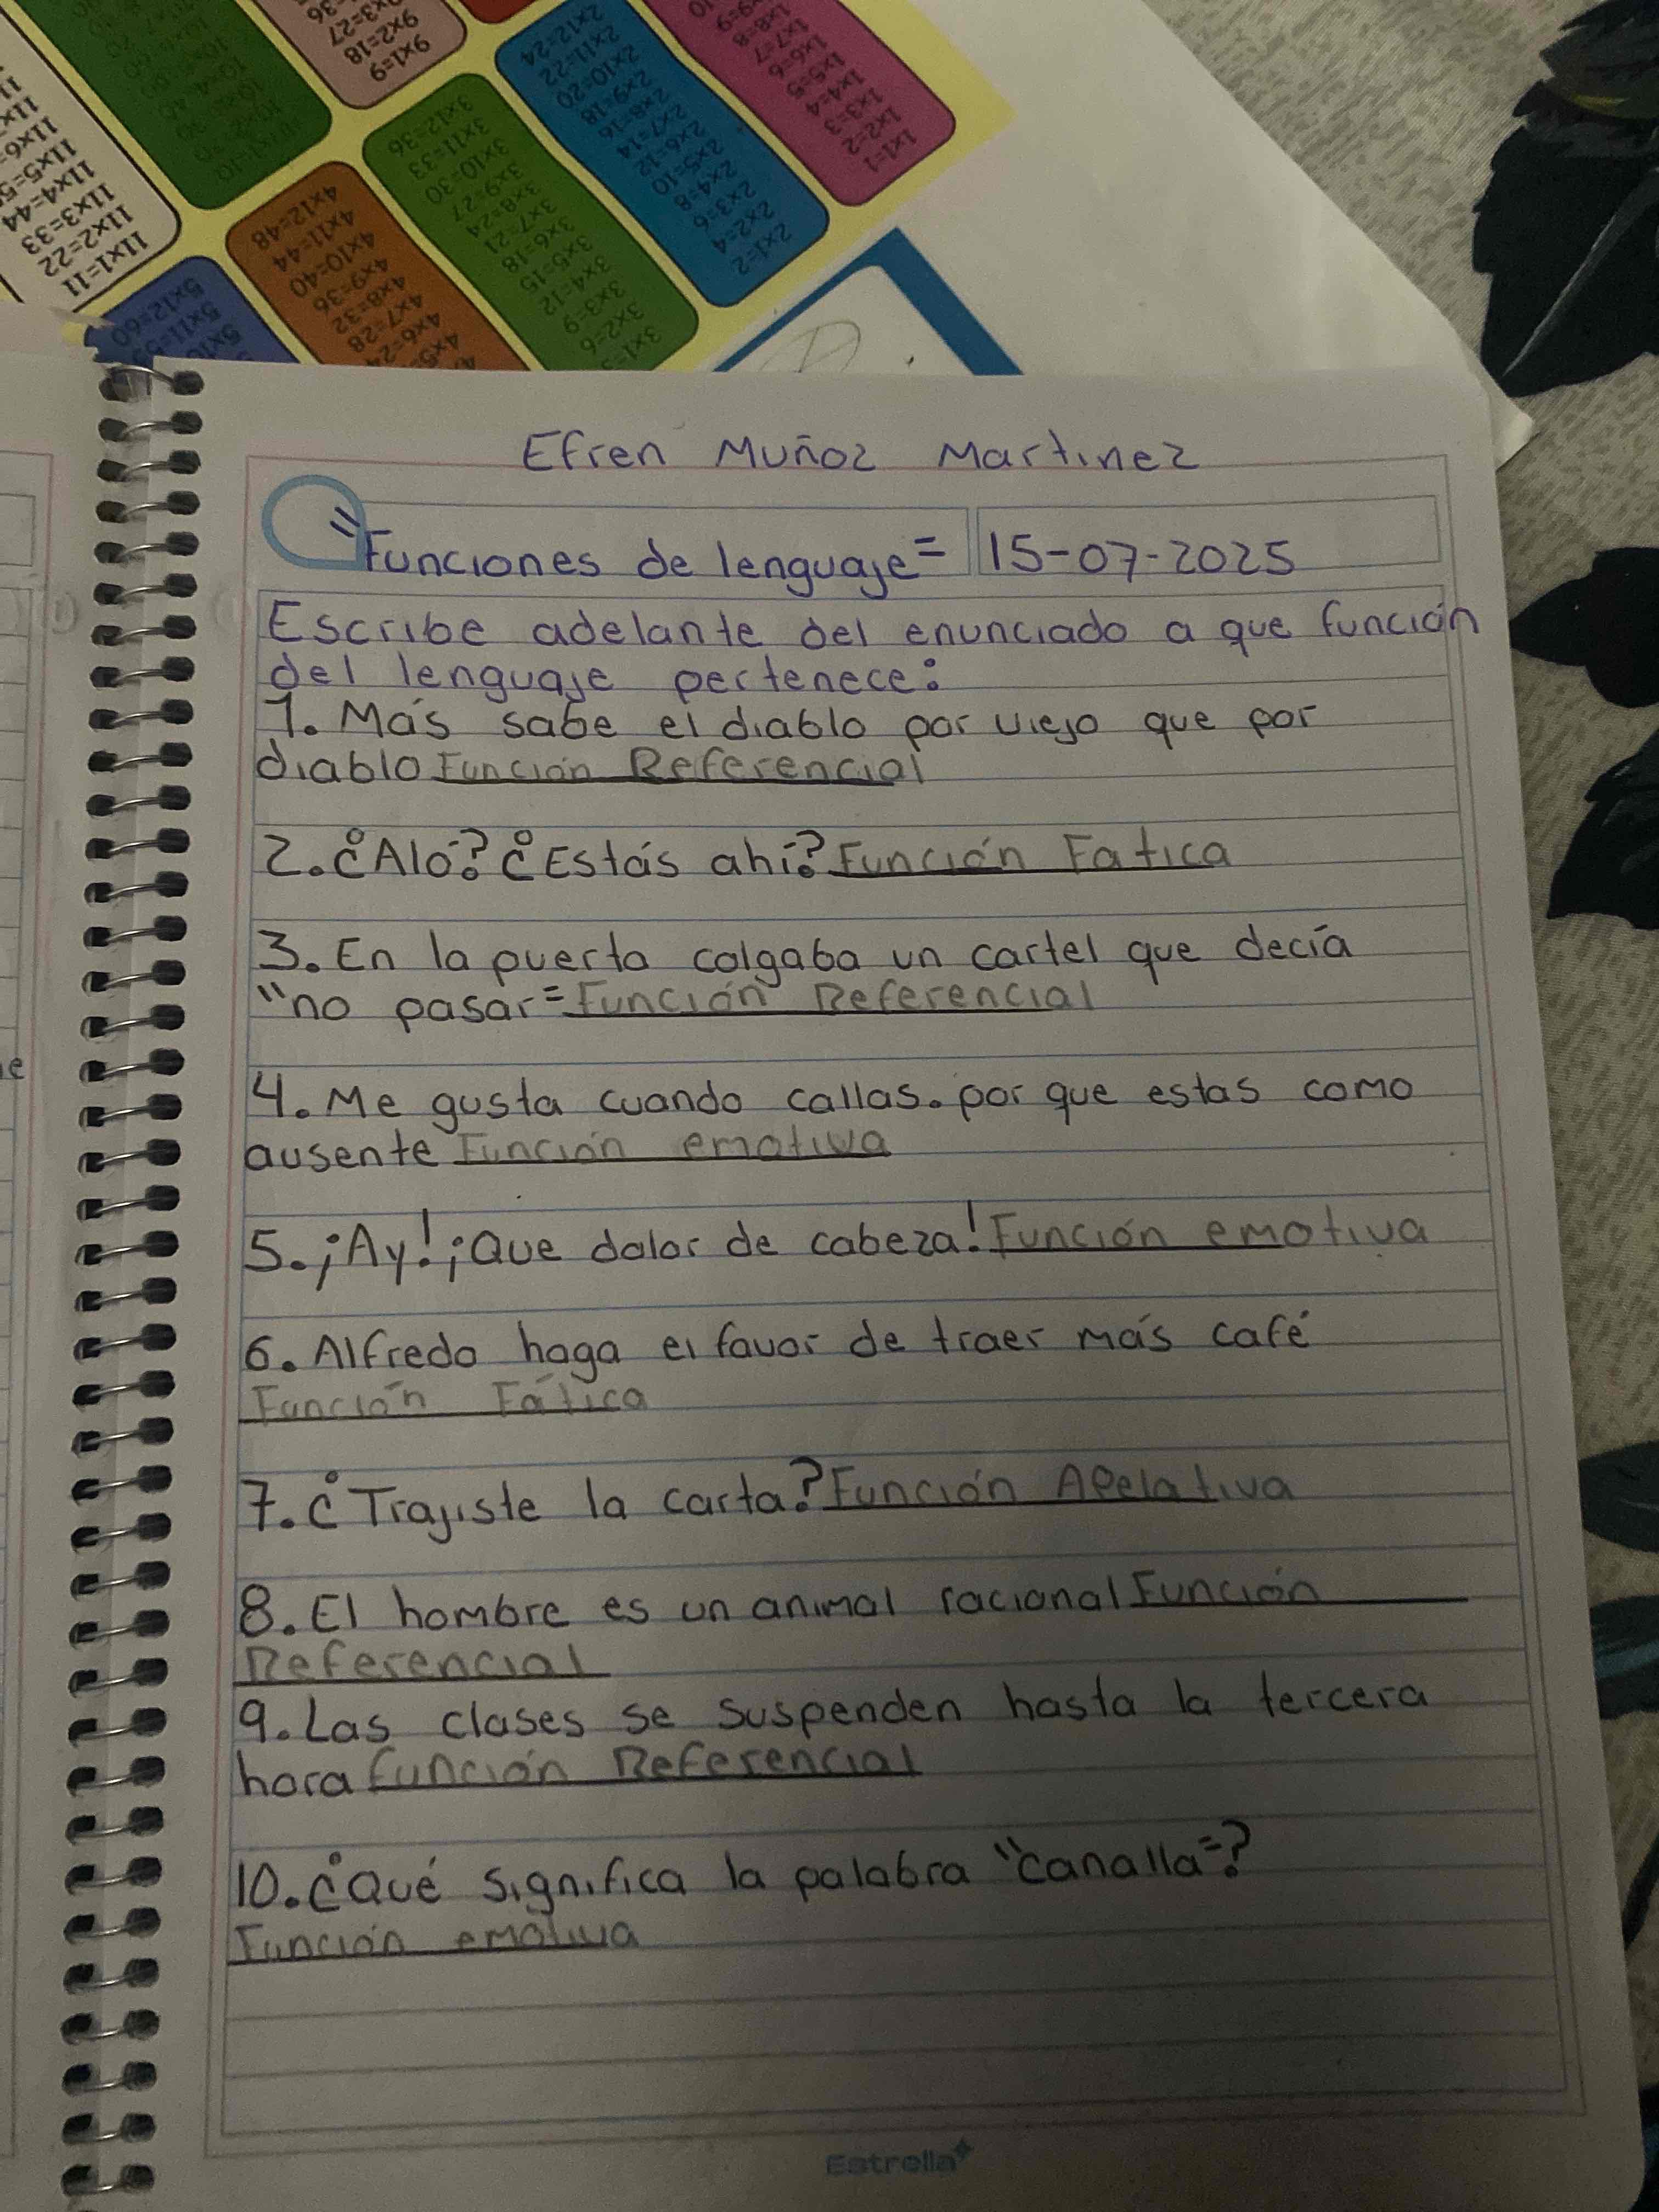 9x1=9
9x2=18
9x3=27
11x1=11
11x2=22
11x3=33
11x4=44
11x5=5
11x6=
5x12=60
4x12=48
4x11=44
4x10=40
4x9=36
4x8=32
4x7=28
4x6=24
3x12=36
3x11=33
3x10=30
3x9=27
3x8=24
3x7=21
3x6=18
3x5=15
3x4=12
3x3=9
3x2=6
2x12=24
2x11=22
2x10=20
2x9=18
2x8=16
2x7=14
2x6=12
2x5=10
2x4=8
2x3=6
2x2=4
2x1=2
1x8=8
1x7=7
1x6=6
1x5=5
1x4=4
1x3=3
1x2=2
1x1=1
Efren Muñoz Martinez
"Funciones de lenguaje" 15-07-2025
Escribe adelante del enunciado a que función
del lenguaje pertenece:
1. Más sabe el diablo por viejo que por
diablo Función Referencial
2. ¿Aló? ¿Estás ahí? Función Fatica
3. En la puerta colgaba un cartel que decía
"no pasar" Función Referencial
4. Me gusta cuando callas. por que estas como
ausente Función emotiva
5. ¡Ay! ¡Que dolor de cabeza! Función emotiva
6. Alfredo haga el favor de traer más café
Función Fática
7. ¿Trajiste la carta? Función Apelativa
8. El hombre es un animal racional Función
Referencial
9. Las clases se suspenden hasta la tercera
hora función Referencial
10. ¿Qué significa la palabra "canalla"?
Función emotiva
Estrella